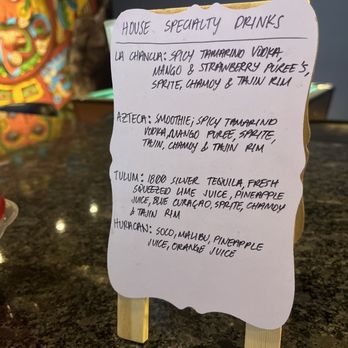 HOUSE SPECIALTY DRINKS
LA CHANCLA: SPICY TAMARINO VODKA
MANGO & STRAWBERRY PUREE'S,
SPRITE, CHAMOY & TAJIN RIM
AZTECA: SMOOTHIE; SPICY TAMARINO
VODKA, MANGO PUREE, SPRITE,
TAJIN, CHAMOY & TAJIN RIM
TULUM: 1800 SILVER TEQUILA, FRESH
SQUEEZED LIME JUICE, PINEAPPLE
JUICE, BLUE CURAÇAO, SPRITE, CHAMOY
& TAJIN RIM
HURACAN: SOCO, MALIBU, PINEAPPLE
JUICE, ORANGE JUICE